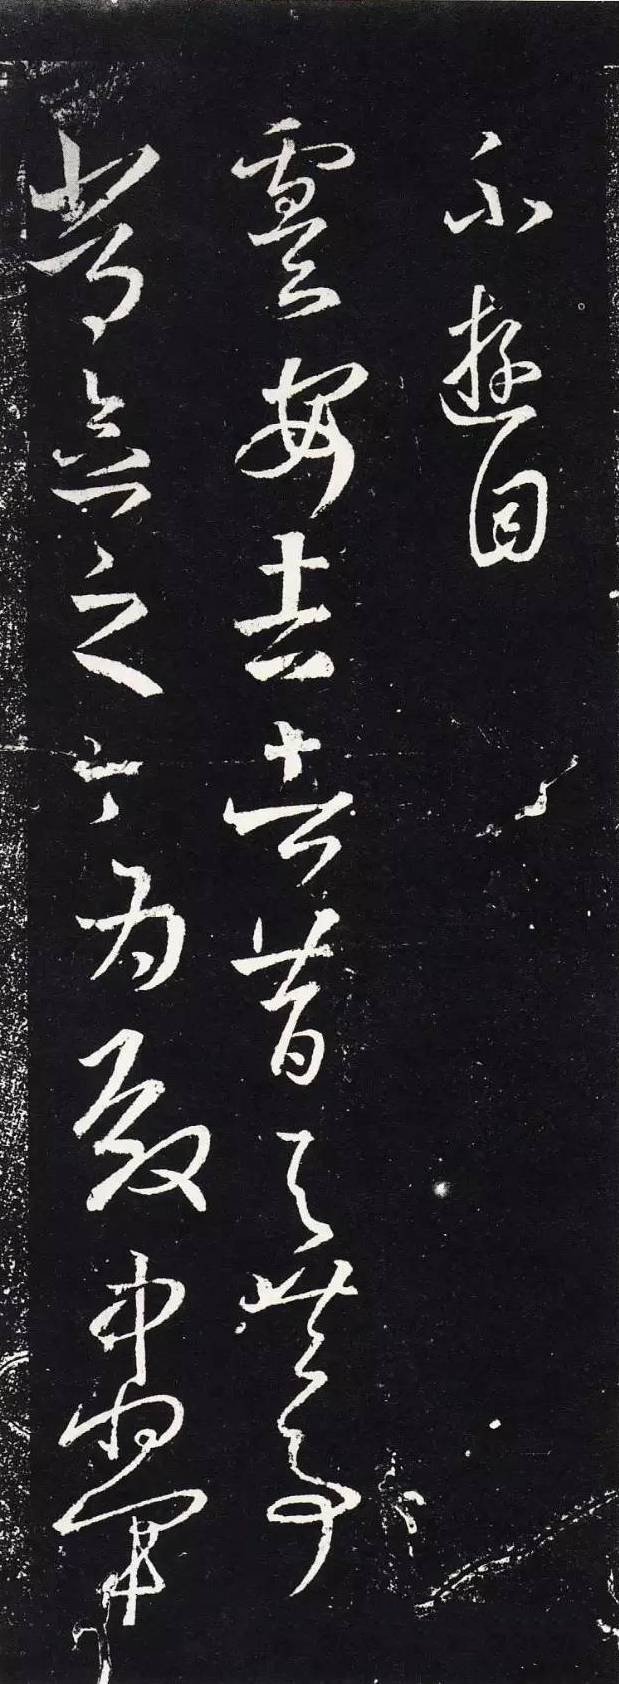 不遊目
虞安吉者昔與共事
常念之今為殿中將軍